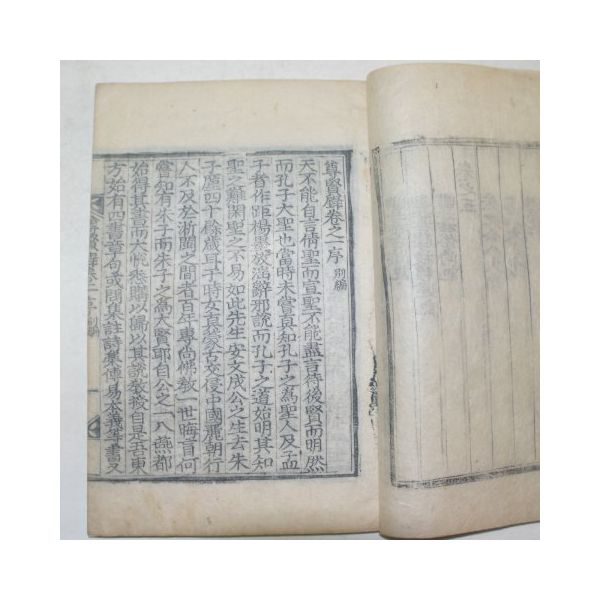 尊賢錄卷之一序 別編
天不能自言倩聖而宣聖不能盡言待後賢而明然
而孔子大聖也當時未嘗真知孔子之爲聖人及孟
子者作距楊墨放淫辭邪說而孔子之道始明其知
聖之難闲聖之不易如此先生安文成公之生去朱
子庢四十餘歲耳子時女真蒙古交侵中國麗朝行
人不及於浙閩之間者百年專尚佛敎一世晦盲何
嘗知有朱子而朱子之爲大賢耶自公之一入燕都
始得其書而大悅悉購以歸以其說敎授自是吾東
方始有四書章句或問集註詩集傳易本義等書又